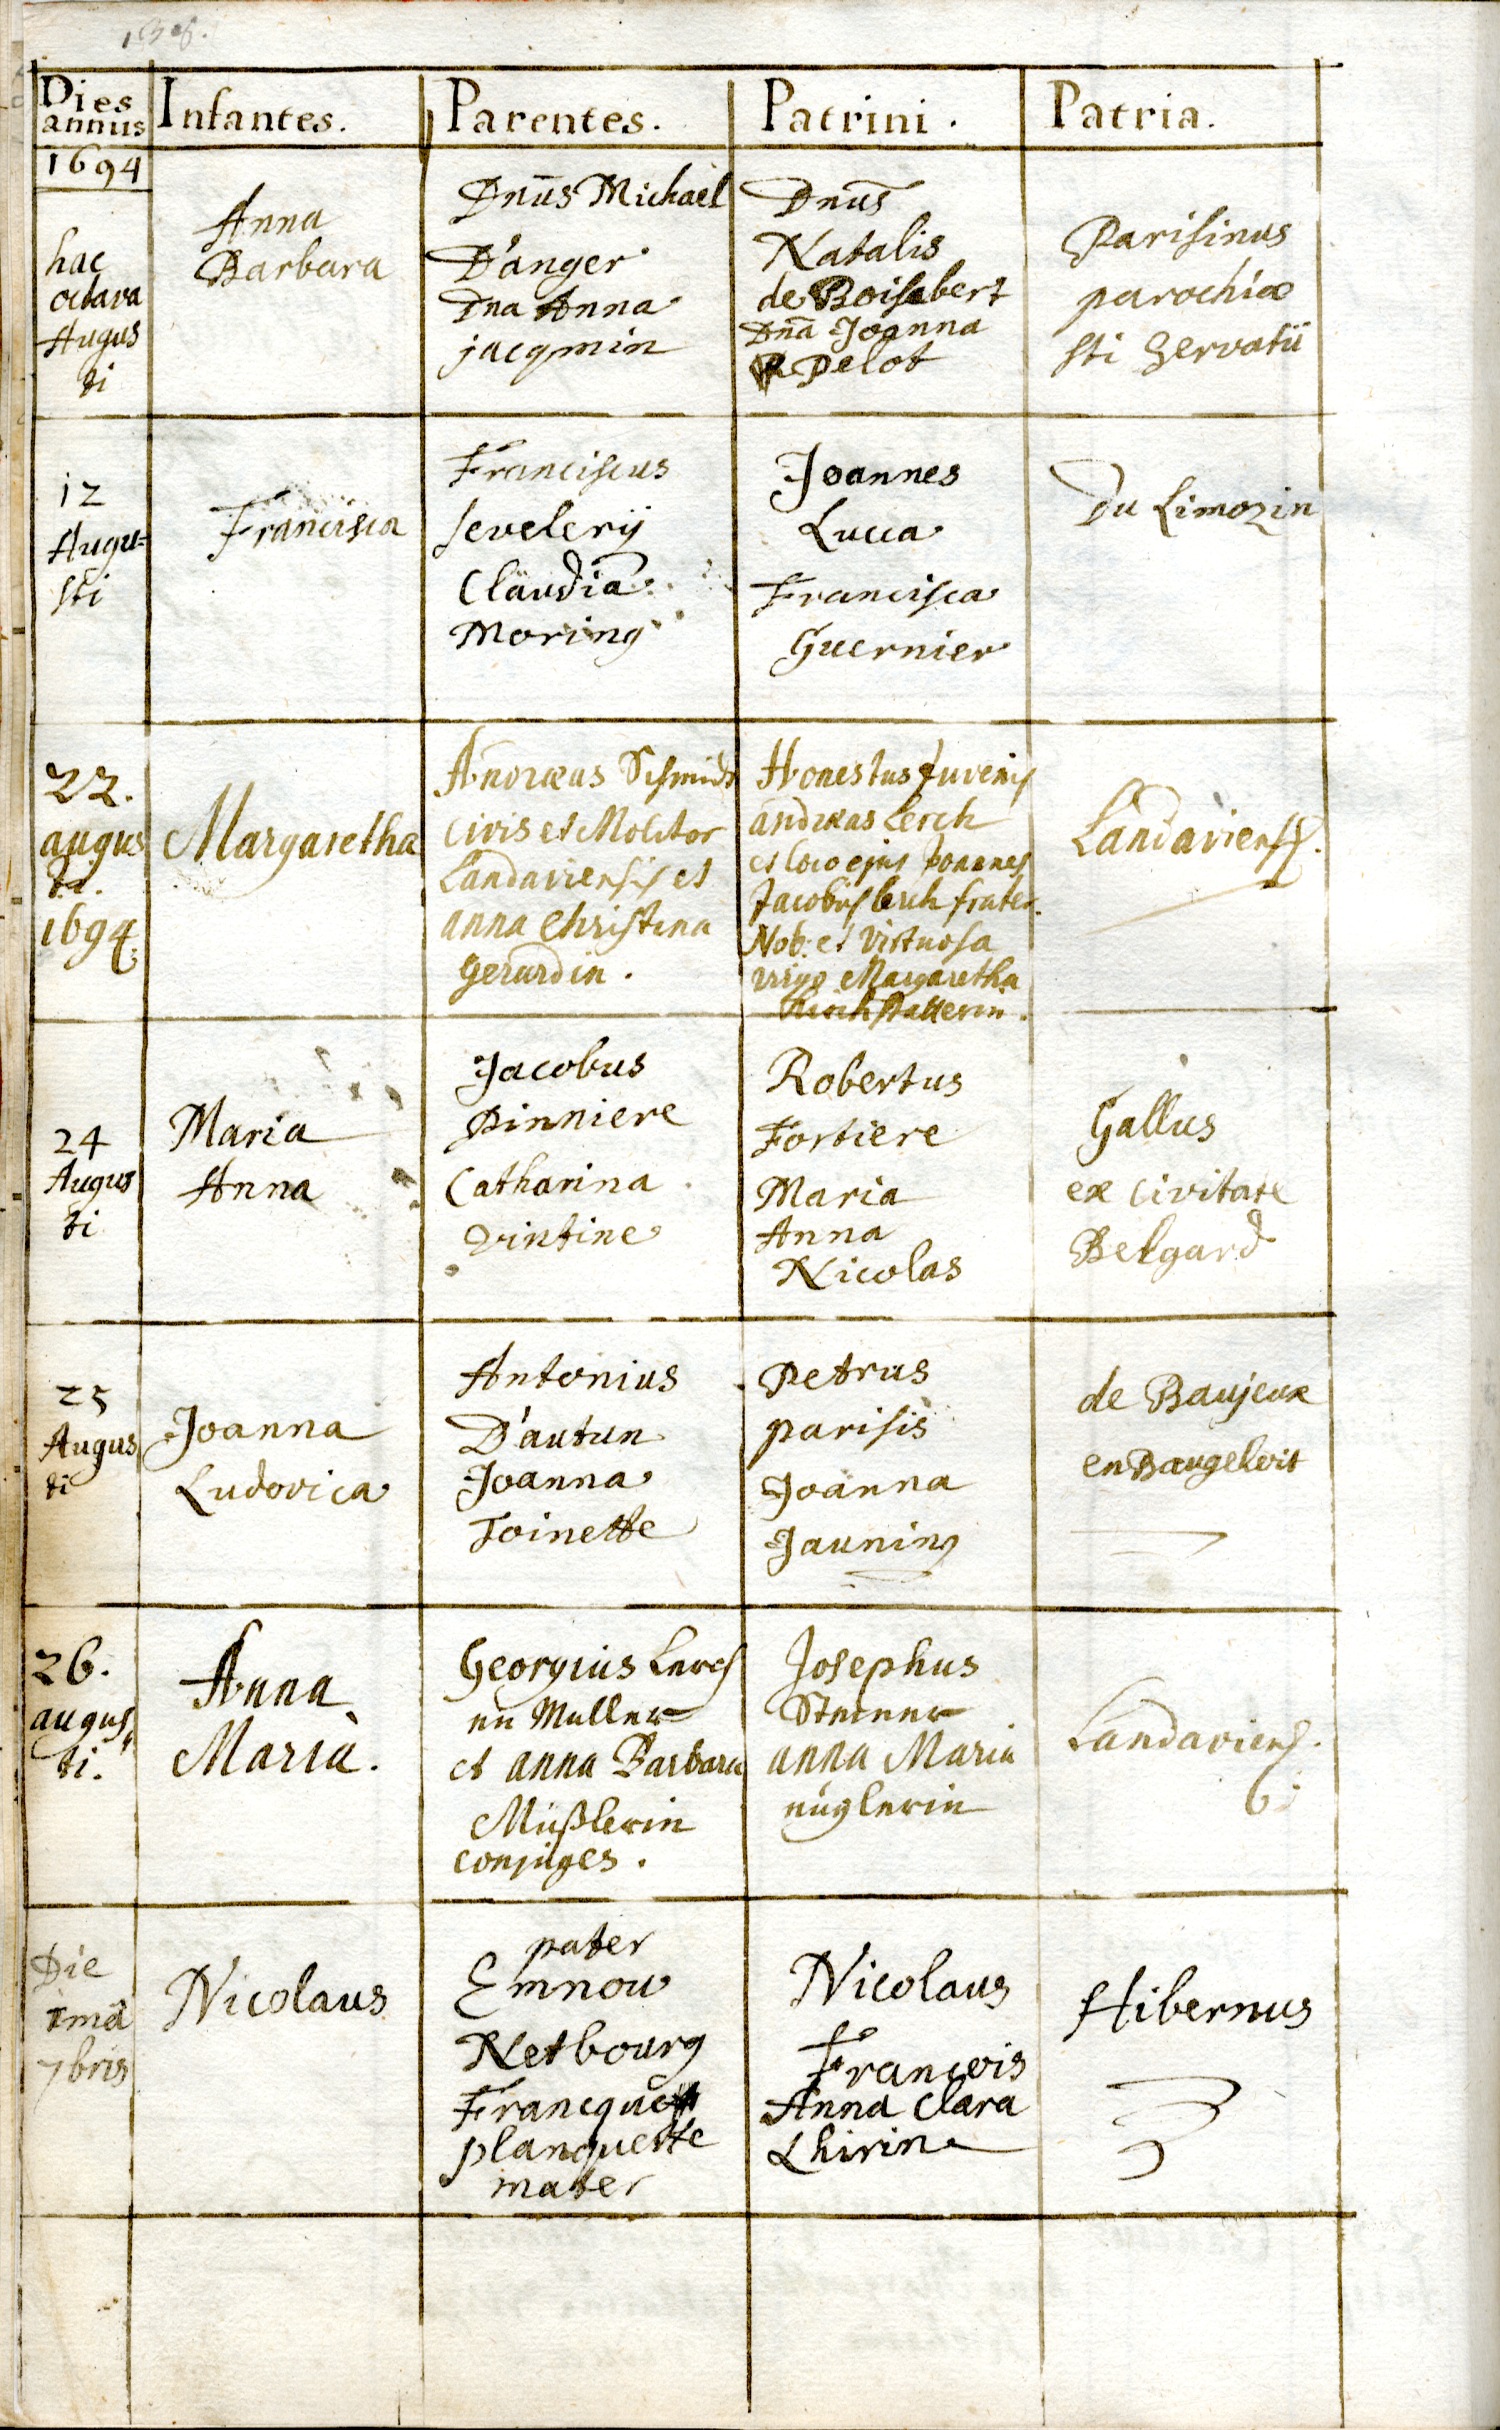 Dies
annus
Infantes.
Parentes.
Patrini.
Patria.
1694
hac
octava
Augus
ti
Anna
Barbara
Dnūs Michaël
D'anger
Dna Anna
jacqmin
Dnūs
Natalis
de Boisebert
Dnā Joanna
Pelot
Parisinus
parochiæ
Sti Gervatii
12
Augu=
sti
Francisca
Franciscus
Severlerij
Claudia
Moring
Joannes
Lucca
Francisca
Guernier
Du Limozin
22.
augus
ti.
1694.
Margaretha
Andræas Schmidt
civis et Molitor
Landaviensis et
anna Christina
Gerardin.
Honestus Juvenis
andræas Lerch
et loco ejus Joannes
Jacobus lerch frater.
Nob: et Virtuosa
virgo Margaretha
Landaviens.
24
Augus
ti
Maria
Anna
Jacobus
Pinniere
Catharina
Vintine
Robertus
Fortiere
Maria
Anna
Nicolas
Gallus
ex Civitate
Belgard
25
Augus
ti
Joanna
Ludovica
Antonius
D'autun
Joanna
Toinette
Petrus
parisis
Joanna
Jauning
de Baujeux
en Baugeloit
26.
augus,
ti.
Anna
Maria.
Georgius Lerch
ein Muller
et anna Barbara
Müßlerin
conjuges.
Josephus
Steiner
anna Maria
nüglerin
Landaviens.
Die
1mâ
7bris
Nicolaus
pater
Emnou
Netbourg
Francque
planquette
mater
Nicolaus
François
Anna Clara
Lhirin
Hibernus